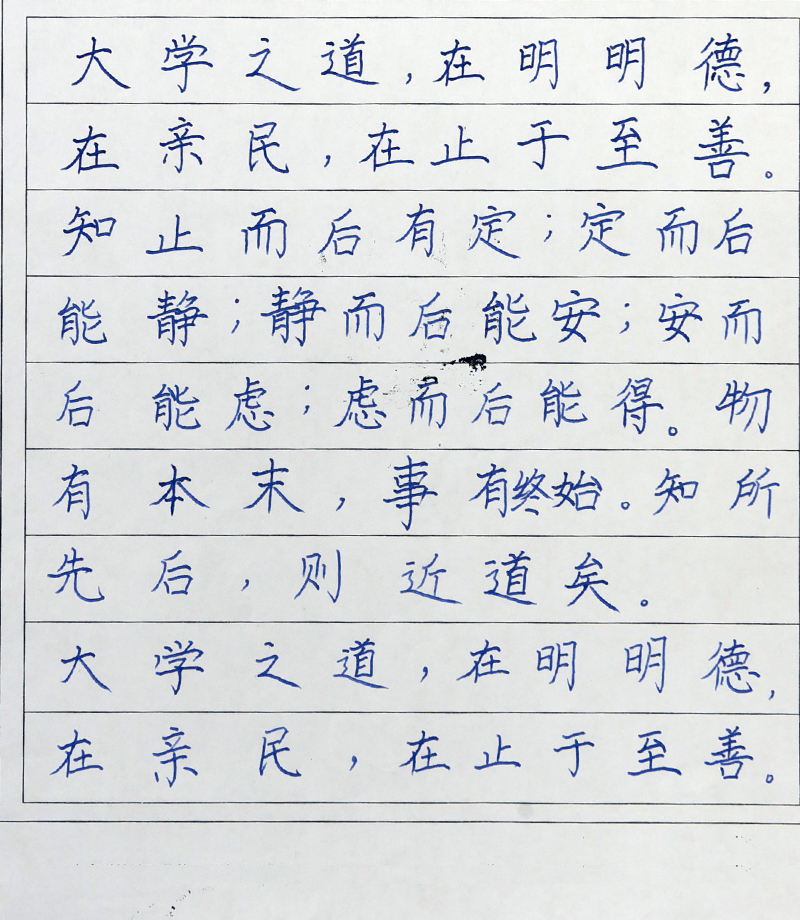 大学之道,在明明德,
在亲民,在止于至善。
知止而后有定;定而后
能静;静而后能安;安而
后能虑;虑而后能得。物
有本末,事有终始。知所
先后,则近道矣。
大学之道,在明明德,
在亲民,在止于至善。